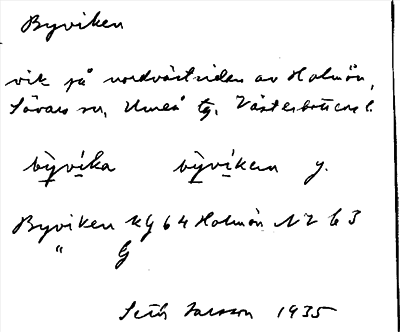 Byviken
vik på nordvästsidan av Holmön,
Sävars sn, Umeå tg, Västerbottens l.
bỳvíka bỳvíken y.
Byviken KG 64 Holmön NZ 63
" G
Seth Larsson 1935